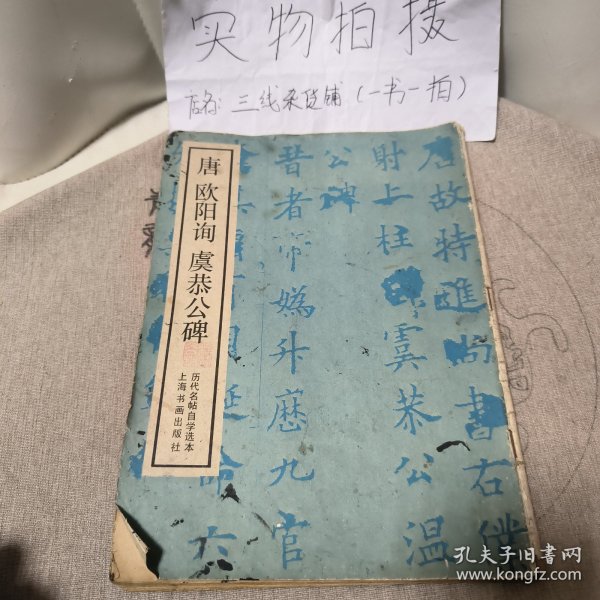 实物拍摄
店名: 三线杂货铺（一书一拍）
唐 欧阳询 虞恭公碑
历代名帖自学选本
上海书画出版社
唐故特进尚书右仆
射上柱 虞恭公温
公碑
昔者帝妫升历九官
孔夫子旧书网
www.kongfz.com